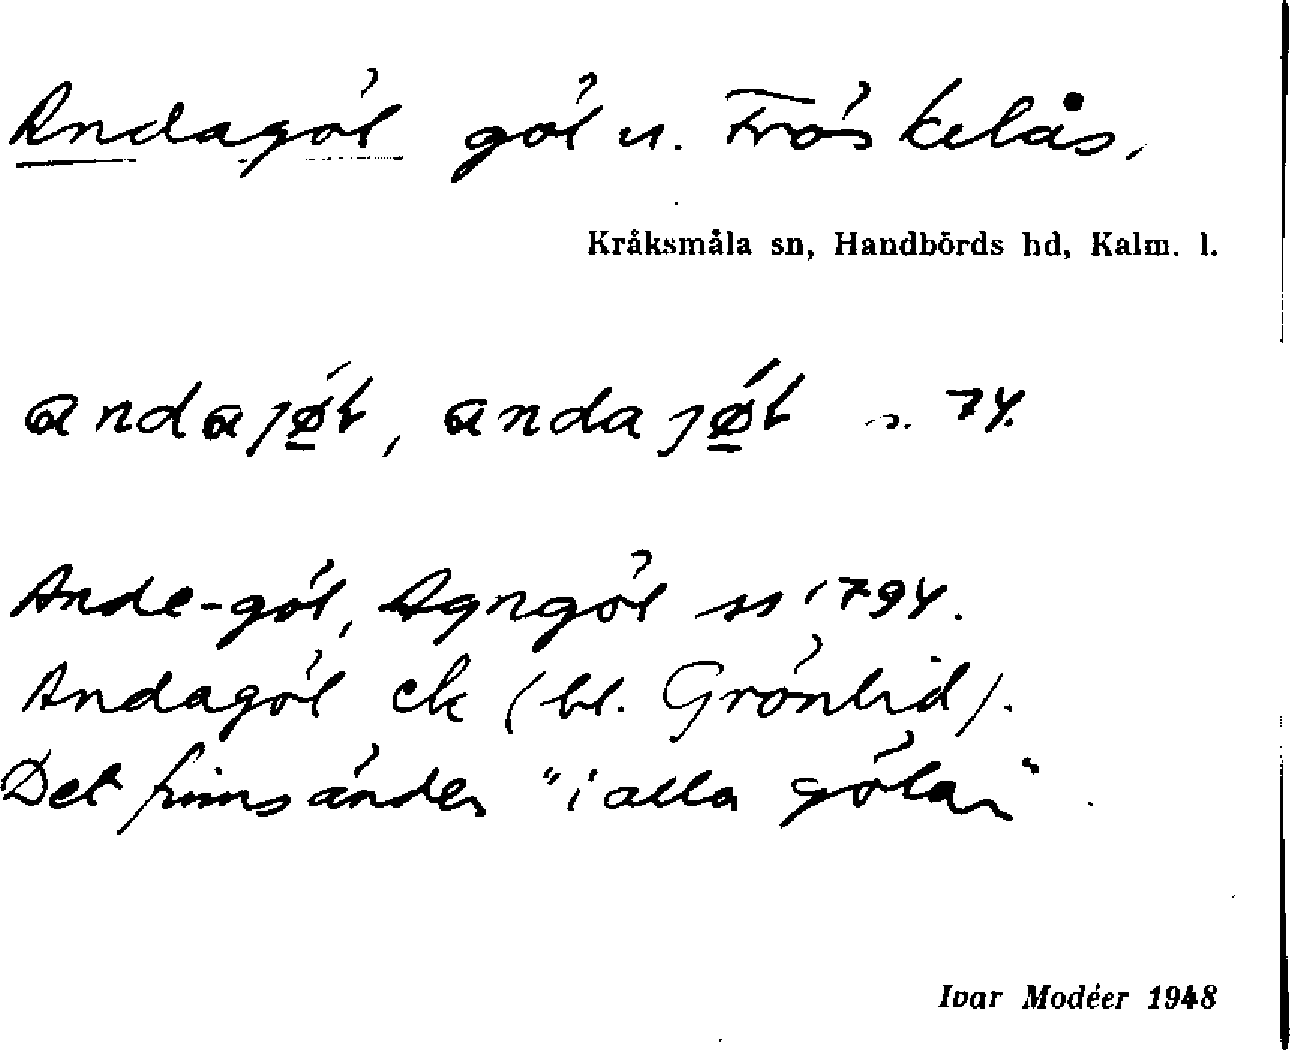 Andagöl göl u. Fröskelås,
Kråksmåla sn, Handbörds hd, Kalm. l.
andajø̱l, andajø̱l s. 74.
Ande-göl, Agngöl ss 1794.
Andagöl ek (bl. Grönlid).
Det finns änder "i alla gölar".
Ivar Modéer 1948